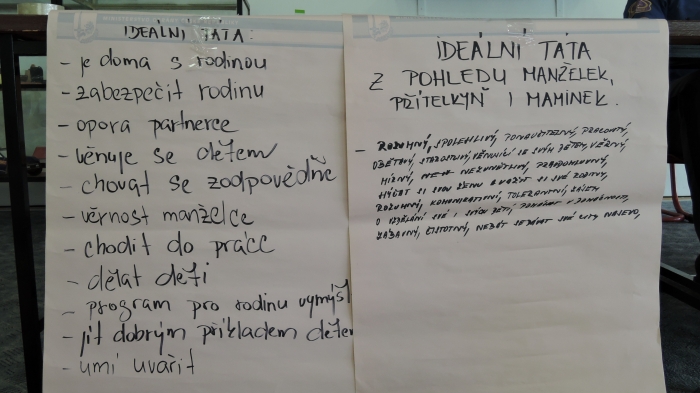 IDEÁLNÍ TÁTA:
- je doma s rodinou
- zabezpečit rodinu
- opora partnerce
- věnuje se dětem
- chovat se zodpovědně
- věrnost manželce
- chodit do práce
- dělat děti
- program pro rodinu vymýšl
- jít dobrým příkladem dětem
- umí uvařit
IDEÁLNÍ TÁTA
Z POHLEDU MANŽELEK,
PŘÍTELKYŇ I MAMINEK.
- ROZUMNÝ, SPOLEHLIVÝ, PRACOVITÝ,
OBĚTAVÝ, STAROSTLIVÝ, VĚNUJÍCÍ SE SVÝM DĚTEM, VĚRNÝ,
MÍRNÝ, NEKONFLIKTNÍ,
VÁŽIT SI SVÉ RODINY,
ROZUMNÝ, KOMUNIKATIVNÍ, TOLERANTNÍ,
O VZDĚLÁNÍ SVÉ I SVÝCH DĚTÍ,
ZÁBAVNÝ, ČISTOTNÝ, NEBÁT SE DÁVAT SVÉ CITY NAJEVO,